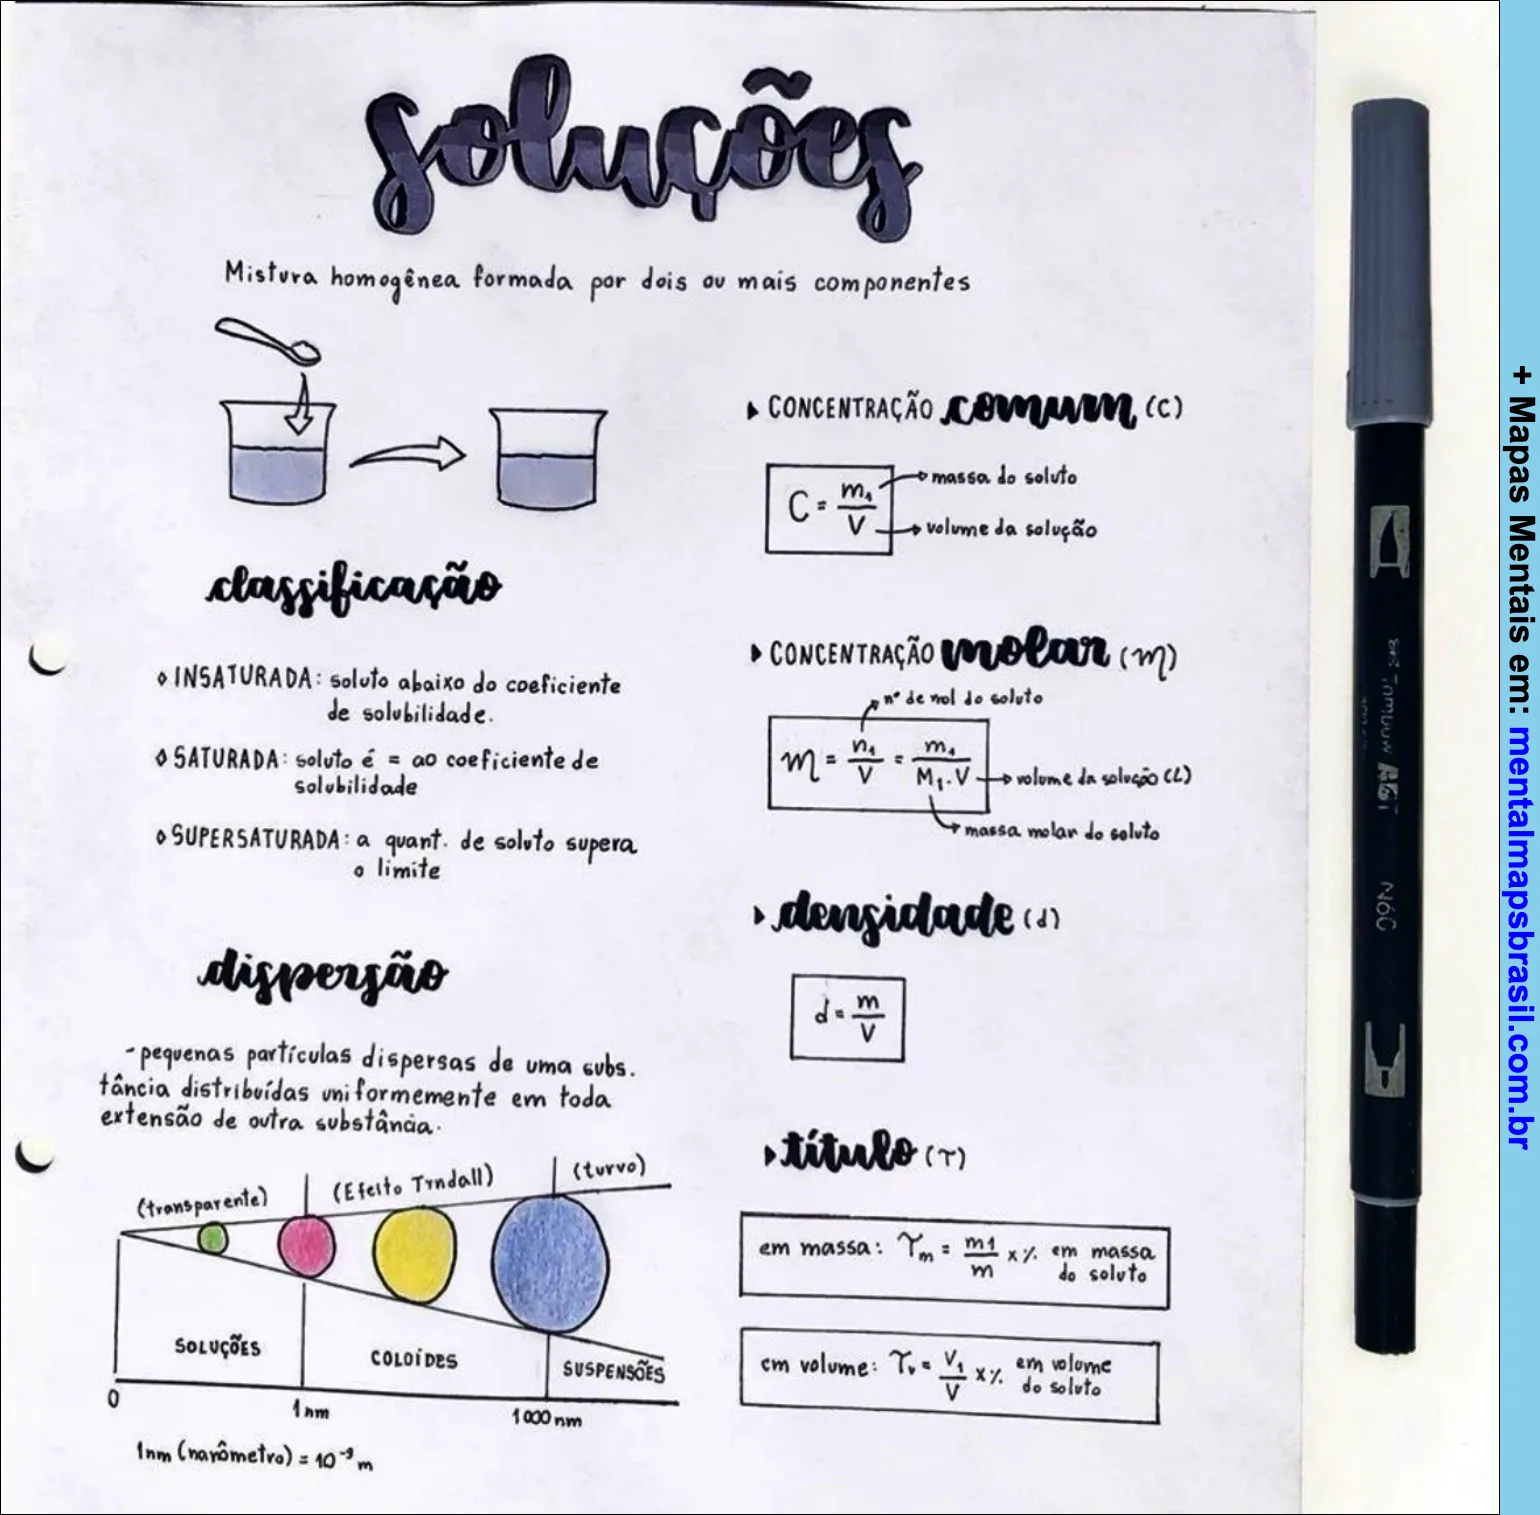 soluções
Mistura homogênea formada por dois ou mais componentes
classificação
INSATURADA: soluto abaixo do coeficiente
de solubilidade.
SATURADA: soluto é = ao coeficiente de
solubilidade
SUPERSATURADA: a quant. de soluto supera
o limite
dispersão
- pequenas partículas dispersas de uma subs.
tância distribuídas uniformemente em toda
extensão de outra substância.
(transparente) (Efeito Tyndall) (turvo)
SOLUÇÕES COLOÍDES SUSPENSÕES
0 1nm 1000nm
1nm (nanômetro) = 10⁻⁹ m
CONCENTRAÇÃO comum (C)
C = m₁/V
massa do soluto
volume da solução
CONCENTRAÇÃO molar (m)
nº de mol do soluto
m = n₁/V = m₁/M₁.V
volume da solução (L)
massa molar do soluto
densidade (d)
d = m/V
título (τ)
em massa: τm = m1/m x % em massa
do soluto
em volume: τv = V₁/V x % em volume
do soluto
N60
+ Mapas Mentais em: mentalmapsbrasil.com.br